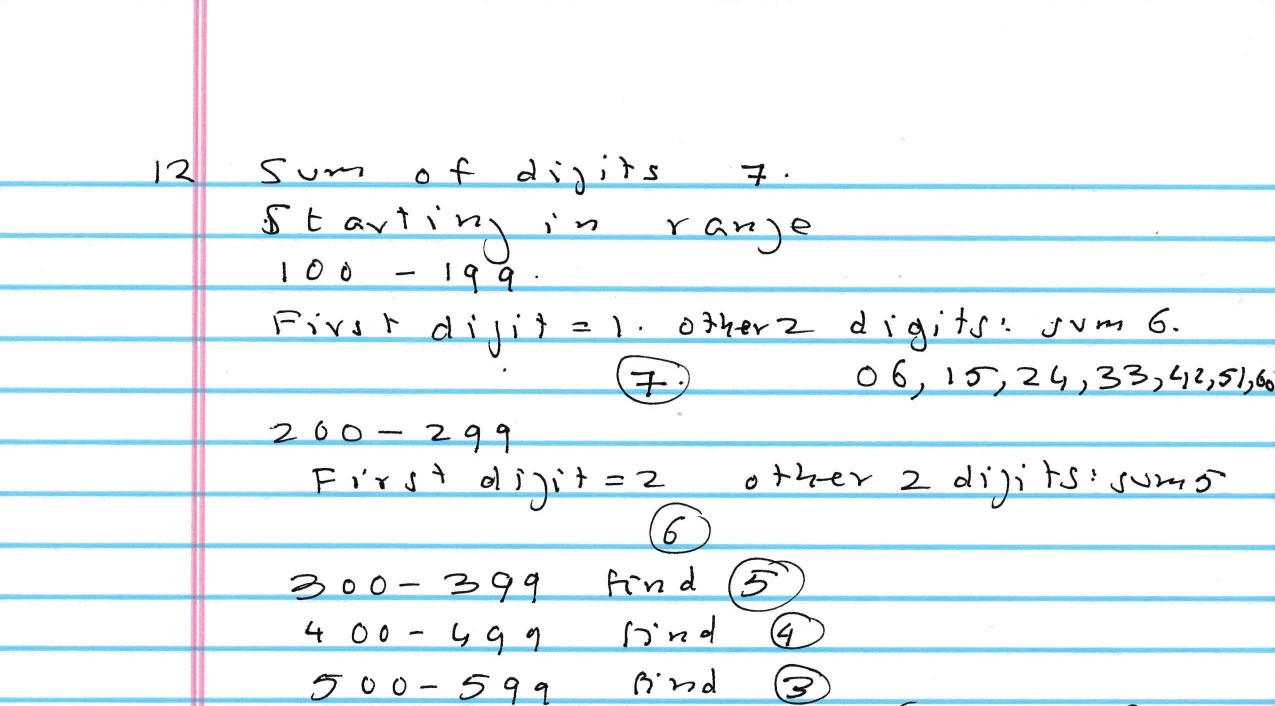 12 Sum of digits 7.
Starting in range
100 - 199.
First digit = 1. other 2 digits: sum 6.
7. 06, 15, 24, 33, 42, 51, 60
200 - 299
First digit = 2 other 2 digits: sum 5
6
300 - 399 find 5
400 - 499 find 4
500 - 599 find 3